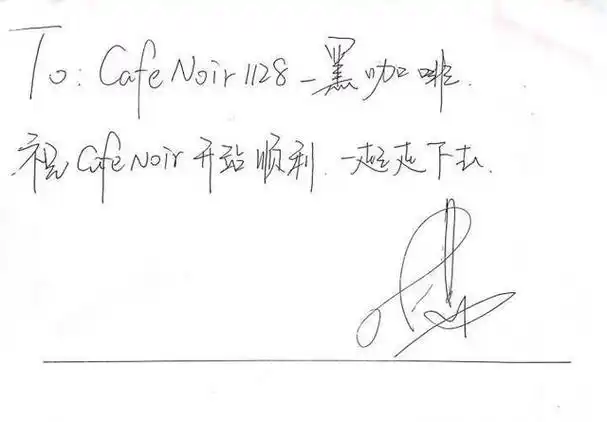 To: Cafe Noir 1128_黑咖啡.
祝 Cafe Noir 开站顺利. 一起走下去.